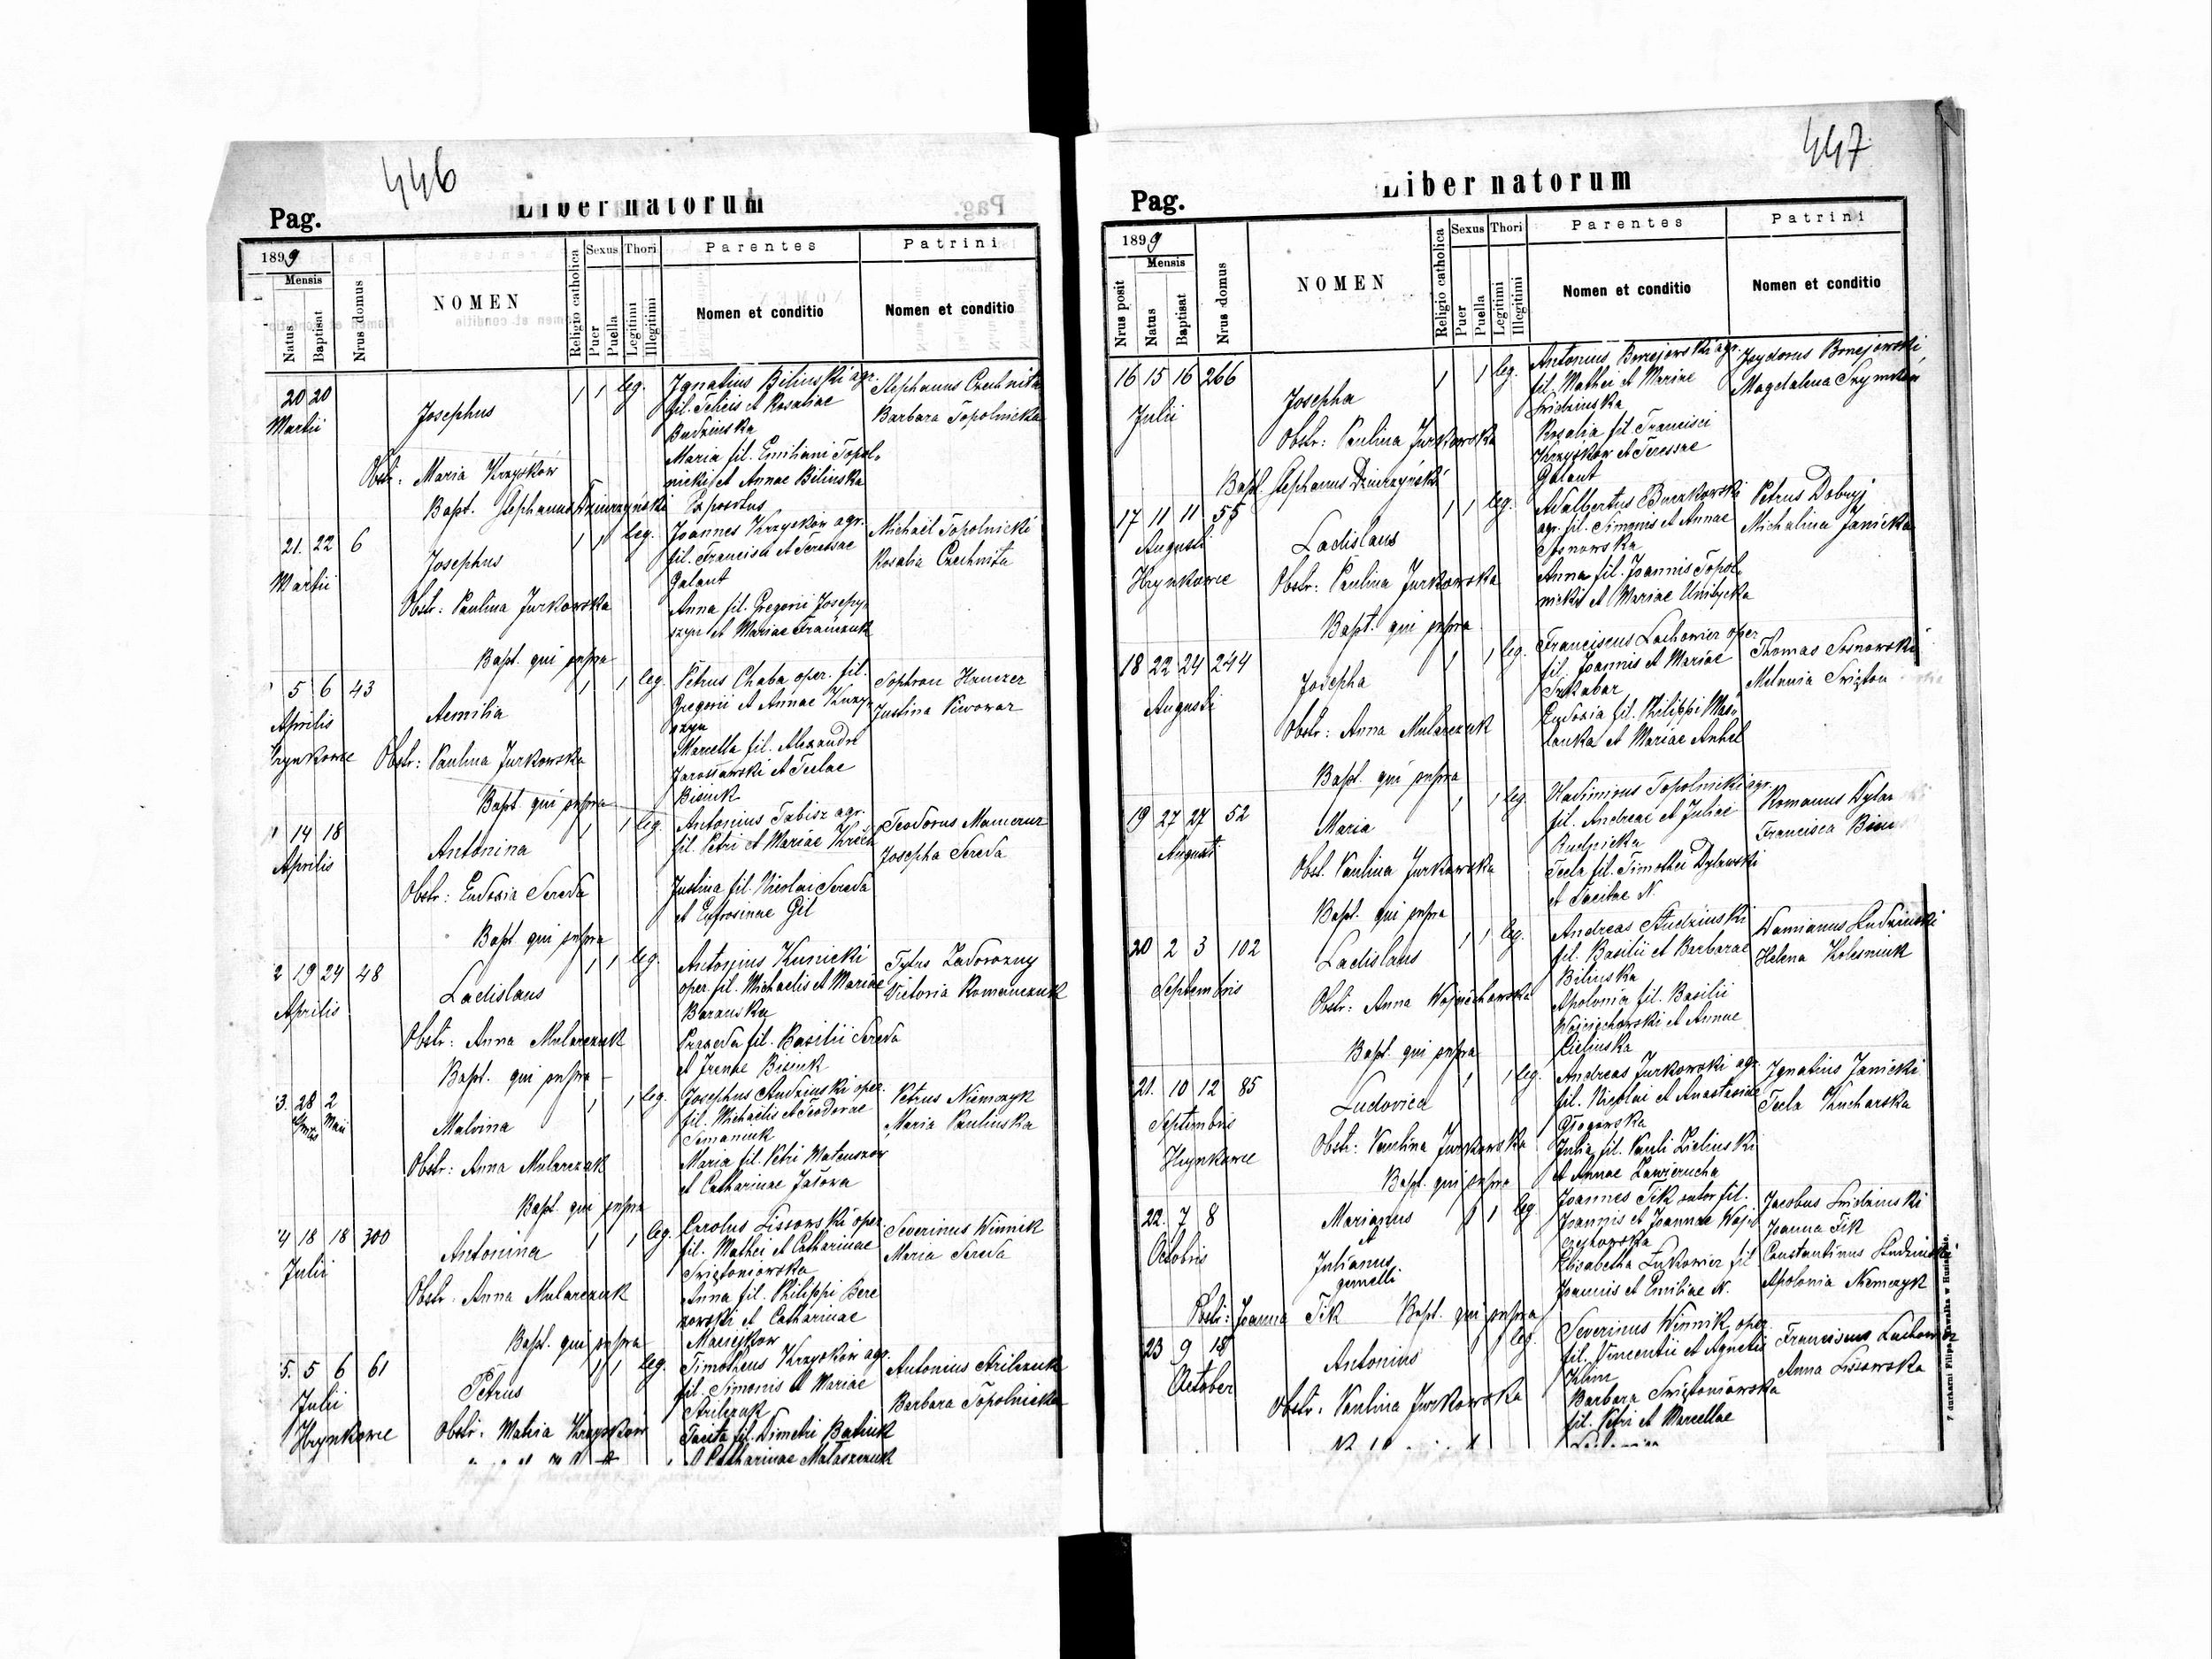 446
Liber natorum
Pag.
1899
Mensis
Natus
Baptisat
Nrus domus
NOMEN
Religio catholica
Sexus
Puer
Puella
Thori
Legitimi
Illegitimi
Parentes
Nomen et conditio
Patrini
Nomen et conditio
20 20
Martii
Josephus
1 1 leg.
Ignatius Biliński agr.
fil. Felicis et Rosaliae
Budzinska
Maria fil. Emiliani Topol-
nicki et Annae Bilinska
Stephanus Czechnita
Barbara Topolnicka
Obstr. Maria Krzyśków
Bapt. Stephanus Dziurzyński Expositus
21. 22 6
Martii
Josephus
1 1 leg.
Joannes Krzyskow agr.
fil. Francisci et Teressae
Galant
Anna fil. Gregorii Josepy-
szyn et Mariae Franczuk
Michaël Topolnicki
Rosalia Czechnita
Obstr: Paulina Jurkowska
Bapt. qui supra
5 6 43
Aprilis
Hrynkowce
Aemilia
1 1 leg.
Petrus Chaba oper. fil.
Gregorii et Annae
Marcella fil. Alexandri
Jarossawski et Teclae
Bisiuk
Sophron
Justina Piwowar
Obstr: Paulina Jurkowska
Bapt. qui supra
14 18
Aprilis
Antonina
1 1 leg.
Antonius Tabisz agr.
fil. Petri et Mariae
Justina fil. Nicolai Sereda
et Eufrosinae Gil
Teodorus
Josepha Sereda
Obstr: Eudoxia Sereda
Bapt qui supra
2 19 24 48
Aprilis
Ladislaus
1 1 leg.
Antonius Kunicki
oper. fil. Michaelis et Mariae
Baranska
Praxeda fil. Basilii Sereda
et Irenae Bisiuk
Tytus Zadorozny
Victoria Romanczuk
Obstr: Anna Mularczuk
Bapt. qui supra
3. 28 2
Aprilis Maii
Malvina
1 1 leg.
Josephus Studzinski oper.
fil. Michaëlis et Teodorae
Semaniuk
Maria fil. Petri Mateuszow
et Catharinae Jasowa
Petrus Niemczyk
Maria Paulinska
Obstr: Anna Mularczuk
Bapt. qui supra
4 18 18 300
Julii
Antonina
1 1 leg.
Carolus Lissowski oper.
fil. Mathei et Catharinae
Swiętoniowska
Anna fil. Philippi Bere
zowski et Catharinae
Maciejkow
Severinus Winnik
Maria Sereda
Obstr. Anna Mularczuk
Bapt. qui supra
5. 5 6 61
Julii
Hrynkowce
Petrus
1 1 leg.
Timotheus Krzyskow agr.
fil. Simonis et Mariae
Strilczuk
Tacita fil. Dimetri Batiuk
et Catharinae Mataszczuk
Antonius Strilczuk
Barbara Topolnicka
Obstr. Maria Krzyskow
447
Liber natorum
Pag.
1899
Mensis
Nrus posit
Natus
Baptisat
Nrus domus
NOMEN
Religio catholica
Sexus
Puer
Puella
Thori
Legitimi
Illegitimi
Parentes
Nomen et conditio
Patrini
Nomen et conditio
16 15 16 266
Julii
Josepha
1 1 leg.
Antonius Borejowski agr.
fil. Mathei et Mariae
Swidzinska
Rosalia fil. Francisci
Krzyskow et Teressae
Galant
Isydorus Borejowski
Magdalena
Obstr: Paulina Jurkowska
Bapt. Stephanus Dziurzyński
17 11 11 55
Augusti
Hrynkowce
Ladislaus
1 1 leg.
Adalbertus Burzkowski
agr. fil. Simonis et Annae
Sosnowska
Anna fil. Joannis Topol-
nicki et Mariae
Petrus Dobryj
Michalina Janicka
Obstr: Paulina Jurkowska
Bapt. qui supra
18 22 24 244
Augusti
Josepha
1 1 leg.
Franciscus Lachowicz oper
fil. Joannis et Mariae
Eudoxia fil. Philippi Mas-
lanka et Mariae Anhel
Thomas Sosnowski
Melania
Obstr: Anna Mularczuk
Bapt. qui supra
19 27 27 52
Augusti
Maria
1 1 leg.
Vladimirus Topolnicki agr.
fil. Andreae et Juliae
Rudnicka
Tecla fil. Timothei Dylawski
et Tacitae N.
Romanus
Francisca
Obst. Paulina Jurkowska
Bapt. qui supra
20 2 3 102
Septembris
Ladislaus
1 1 leg.
Andreas Studzinski
fil. Basilii et Barbarae
Bilinska
Apolonia fil. Basilii
Wojciechowski et Annae
Cielinska
Damianus Studzinski
Helena Kolesniuk
Obstr: Anna Wojciechowska
Bapt. qui supra
21. 10 12 85
Septembris
Hrynkowce
Ludovica
1 1 leg.
Andreas Jurkowski agr.
fil. Nicolai et Anastasiae
Głogowska
Julia fil. Pauli Zielinski
et Annae Zawierucha
Ignatius Janicki
Tecla Kucharska
Obstr: Paulina Jurkowska
Bapt. qui supra
22. 7 8
Octobris
Marianus
et
Julianus
gemelli
1 1 leg
Joannes Fik sutor fil.
Joannis et Joannae Wojci
echowska
Elisabetha Łukowicz fil
Joannis et Emiliae N.
Jacobus Swidzinski
Joanna Fik
Constantinus Studzinski
Apolonia Niemczyk
Obstr: Joanna Fik Bapt. qui supra
23 9 18
October
Antonius
1 1 leg.
Severinus Winnik oper.
fil. Vincentii et Agnetis
Klim
Barbara Swiętoniowska
fil. Petri et Marcellae
Franciscus Lachowicz
Anna Lissowska
Obstr. Paulina Jurkowska